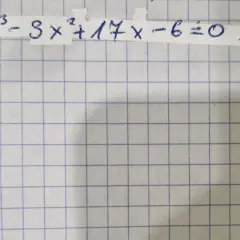 ³ - 9x² + 17x - 6 = 0